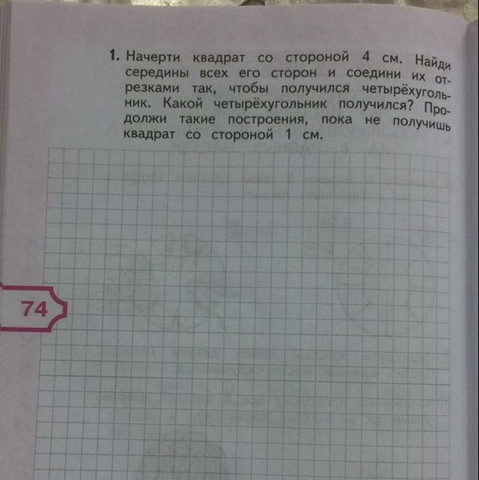 1. Начерти квадрат со стороной 4 см. Найди
середины всех его сторон и соедини их от-
резками так, чтобы получился четырёхуголь-
ник. Какой четырёхугольник получился? Про-
должи такие построения, пока не получишь
квадрат со стороной 1 см.
74